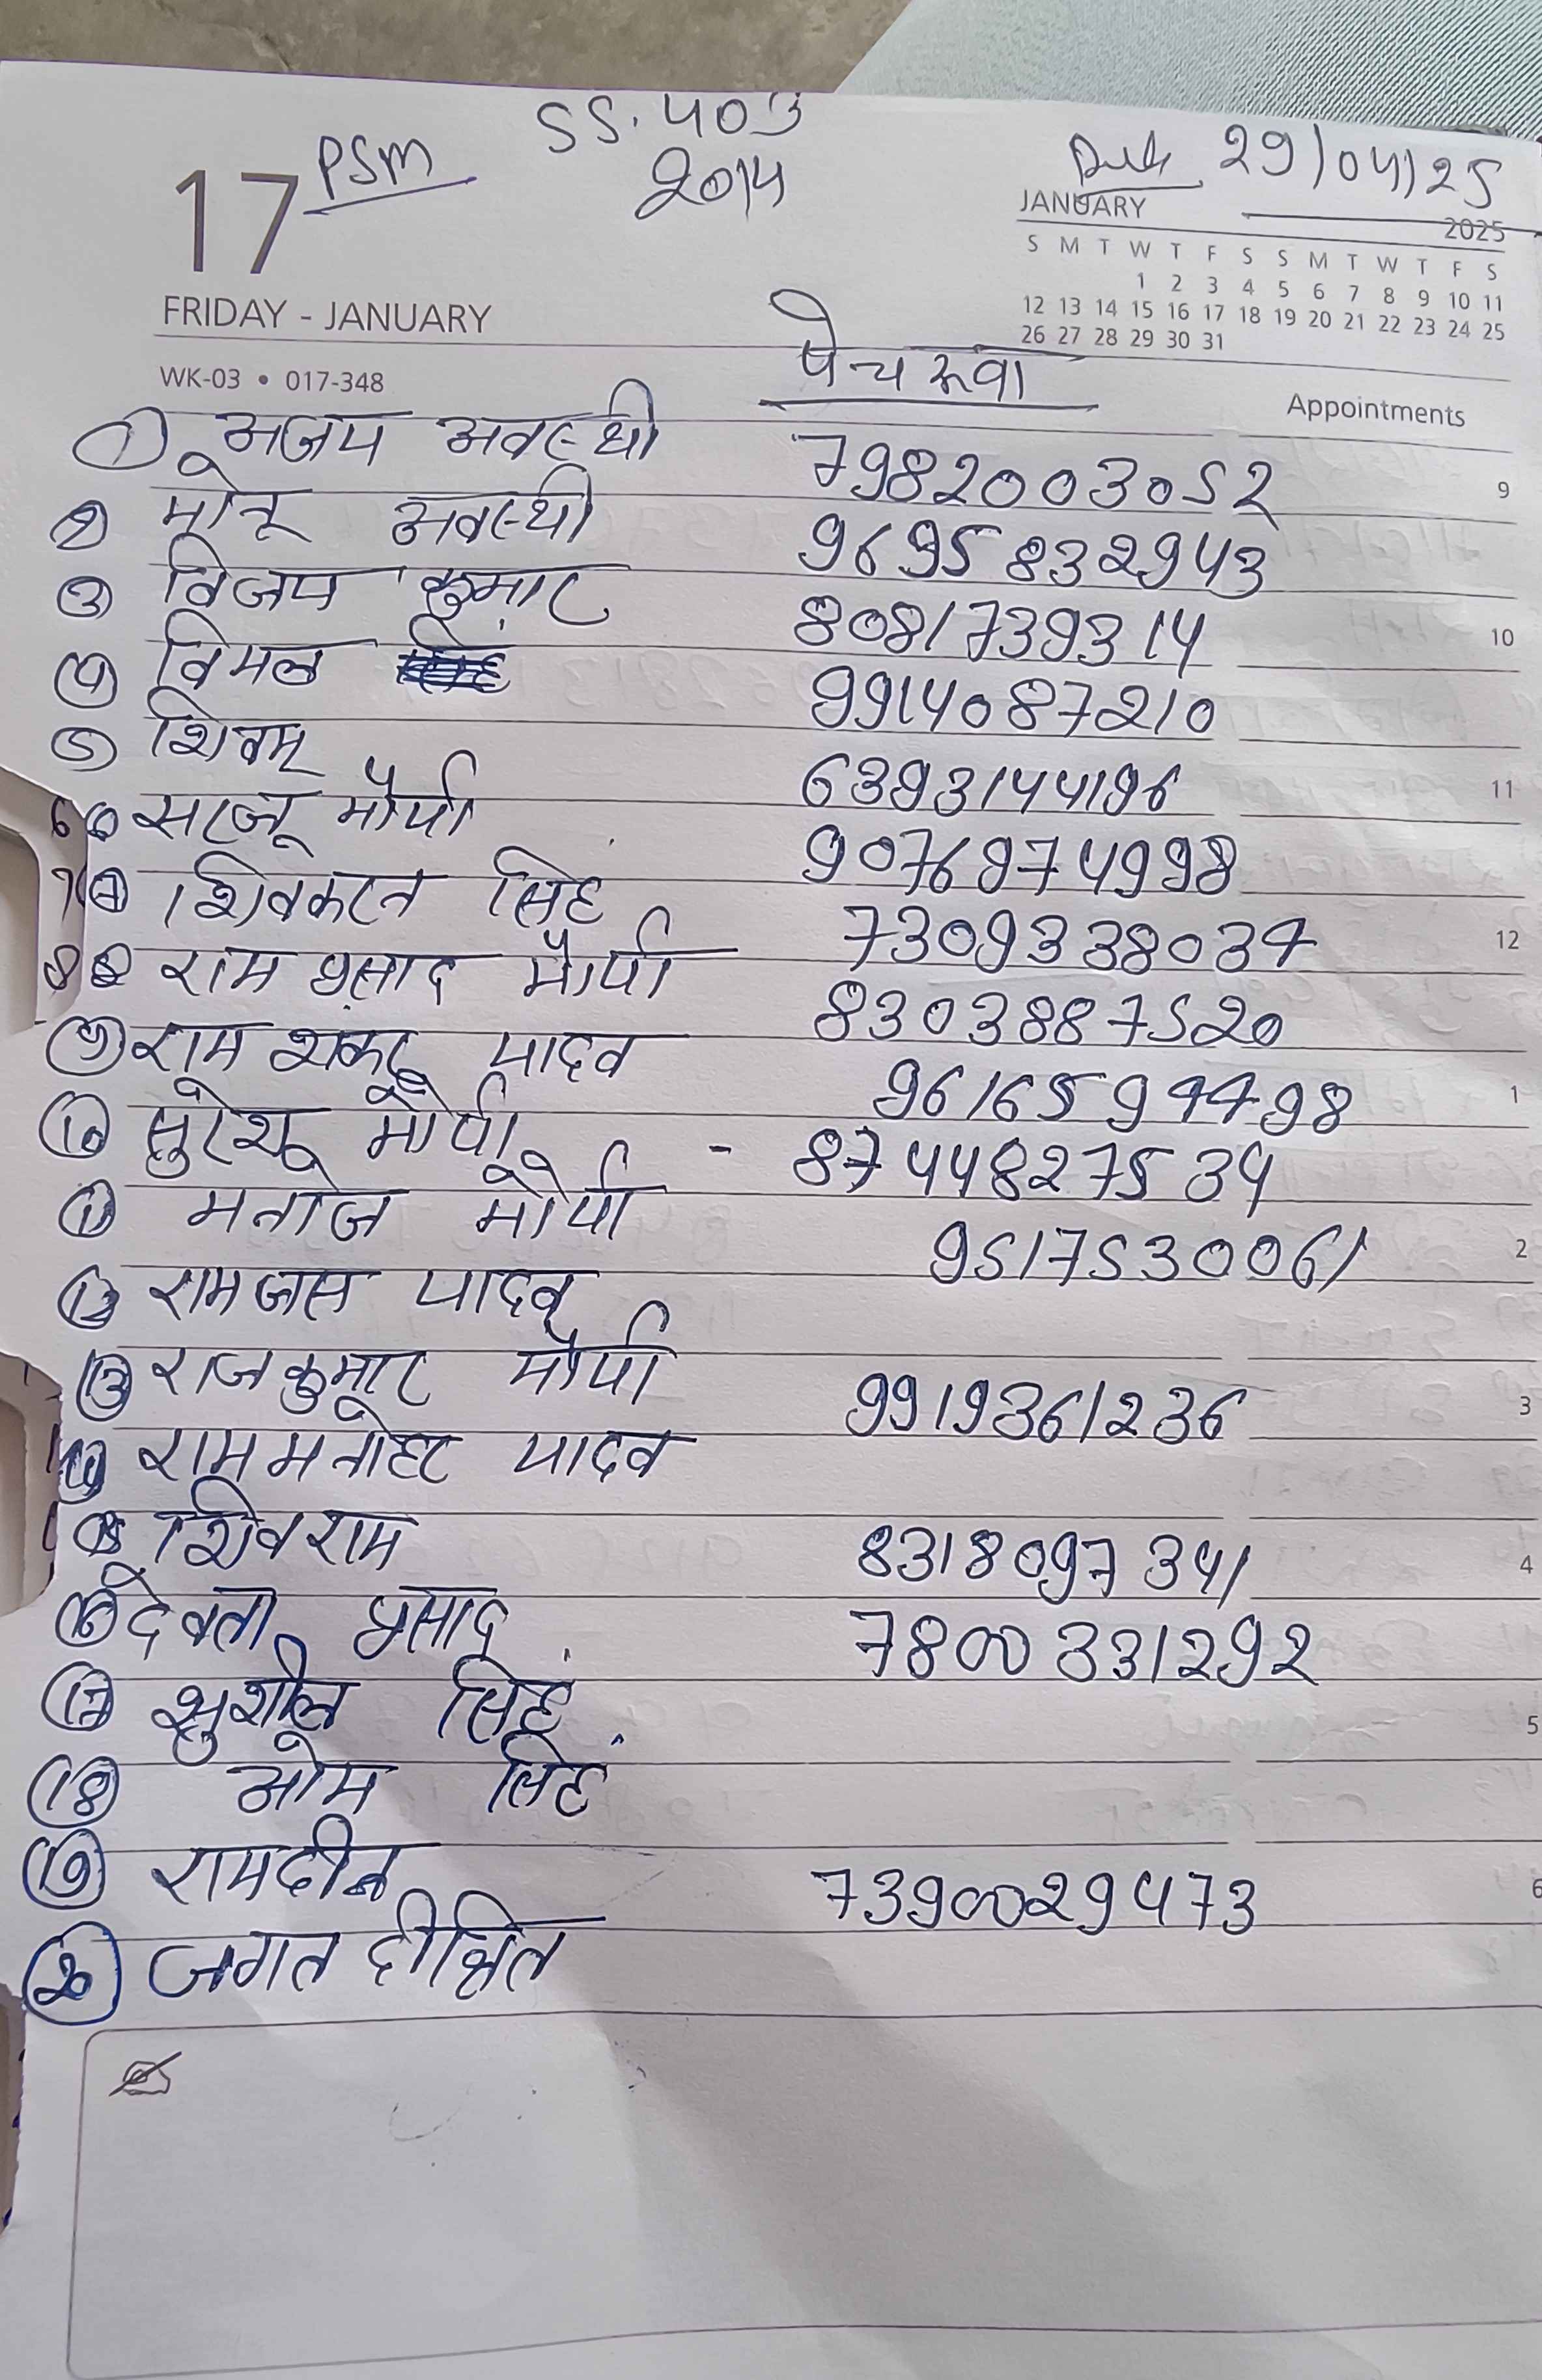 SS. 403
PSM
2014
Date 29/04/25
17
JANUARY 2025
S M T W T F S S M T W T F S
1 2 3 4 5 6 7 8 9 10 11
12 13 14 15 16 17 18 19 20 21 22 23 24 25
26 27 28 29 30 31
FRIDAY - JANUARY
पेचरूवा
WK-03 • 017-348
Appointments
① अजय अवस्थी 7982003052
② मोनू अवस्थी 9695832943 9
③ विजय कुमार 8081739314 10
④ विमल 9914087210
⑤ शिवम् 6393144196 11
6 सरजू मौर्या 9076974998
7 शिवकरन सिंह 7309338034 12
8 राम प्रसाद मौर्या 8303887520
⑨ राम शंकर यादव 9616594498 1
⑩ सुरेश मौर्या - 8744827534
⑪ मनोज मौर्या 9517530061 2
⑫ रामजस यादव
⑬ राजकुमार मौर्या 9919361236 3
⑭ राम मनोहर यादव
⑮ शिवराम 8318097341 4
⑯ देवता प्रसाद 7800331292
⑰ सुशील सिंह 5
⑱ ओम सिंह
⑲ रामदीन 7390029473 6
⑳ जगत दीक्षित